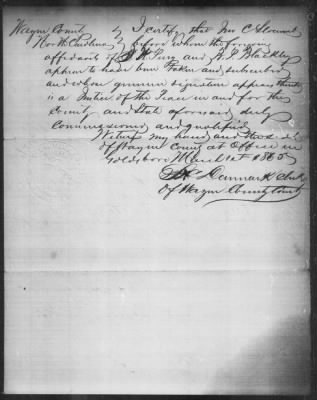 Wayne County } I certify that Jno C Slocumb
North Carolina } before whom the foregoing
affidavits of J H Pury and H J Blackley
appear to have been taken and subscribed
and whose genuine signature appears thereto
is a Justice of the Peace in and for the
County and State aforesaid duly
commissioned and qualified
Witness my hand and the seal
of Wayne County at Office in
Goldsboro March 1st 186
Clerk
Of Wayne County Court